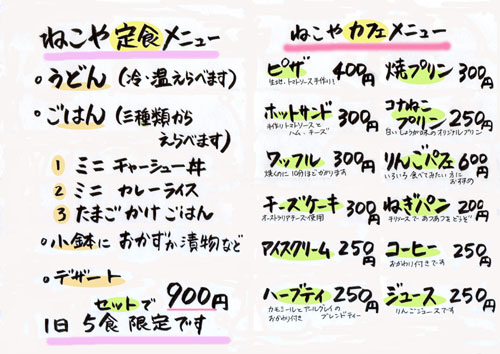 ねこや 定食 メニュー
○うどん (冷・温えらべます)
○ごはん (三種類から
えらべます)
1 ミニ チャーシュー丼
2 ミニ カレーライス
3 たまごかけごはん
○小鉢に おかずか漬物など
○デザート
セットで 900円
1日 5食 限定です
ねこや カフェ メニュー
ピザ 400円
生地・トマトソース手作り!
ホットサンド 300円
手作りトマトソースと
ハム・チーズ
ワッフル 300円
焼くのに10分ほどかかります
チーズケーキ 300円
オーストラリアチーズ使用
アイスクリーム 250円
ハーブティ 350円
カモミールとアールグレイの
おかわり付き ブレンドティー
焼プリン 300円
コナねこ
プリン 250円
白いしょうが味のオリジナルプリン
りんごパフェ 600円
いろいろ食べてみたい方に
おすすめ
ねぎパン 200円
チリソースであつあつをどうぞ
コーヒー 250円
おかわり付きです
ジュース 250円
りんごジュースです